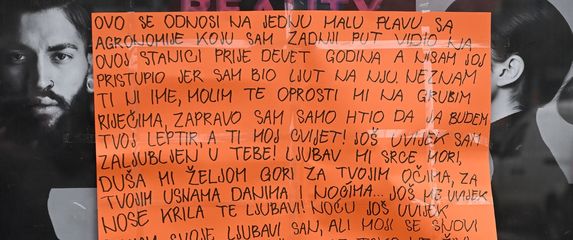 REALITY
OVO SE ODNOSI NA JEDNU MALU PLAVU SA
AGRONOMIJE KOJU SAM ZADNJI PUT VIDIO NA
OVOJ STANICI PRIJE DEVET GODINA A NISAM JOJ
PRISTUPIO JER SAM BIO LJUT NA NJU. NEZNAM
TI NI IME, MOLIM TE OPROSTI MI NA GRUBIM
RIJEČIMA, ZAPRAVO SAM SAMO HTIO DA JA BUDEM
TVOJ LEPTIR, A TI MOJ CVIJET! JOŠ UVIJEK SAM
ZALJUBLJEN U TEBE! LJUBAV MI SRCE MORI,
DUŠA MI ŽELJOM GORI ZA TVOJIM OČIMA, ZA
TVOJIM USNAMA DANIMA I NOĆIMA... JOŠ ME UVIJEK
NOSE KRILA TE LJUBAVI! NOĆU JOŠ UVIJEK
SVOJE LJUBAVI SAN, ALI MOJI SE SNOVI